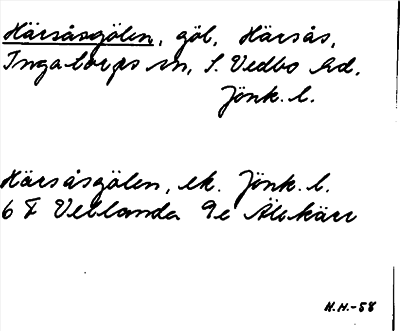 Härsåsgölen, göl, Härsås,
Ingatorps sn, S. Vedbo hd.
Jönk. l.
Härsåsgölen, ek. Jönk. l.
6 F Vetlanda 9e Älekärr
N.H.-58